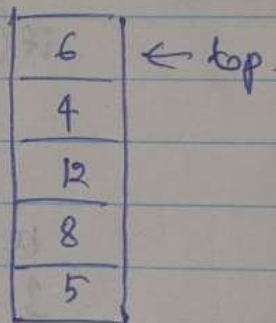 6 ← top.
4
12
8
5